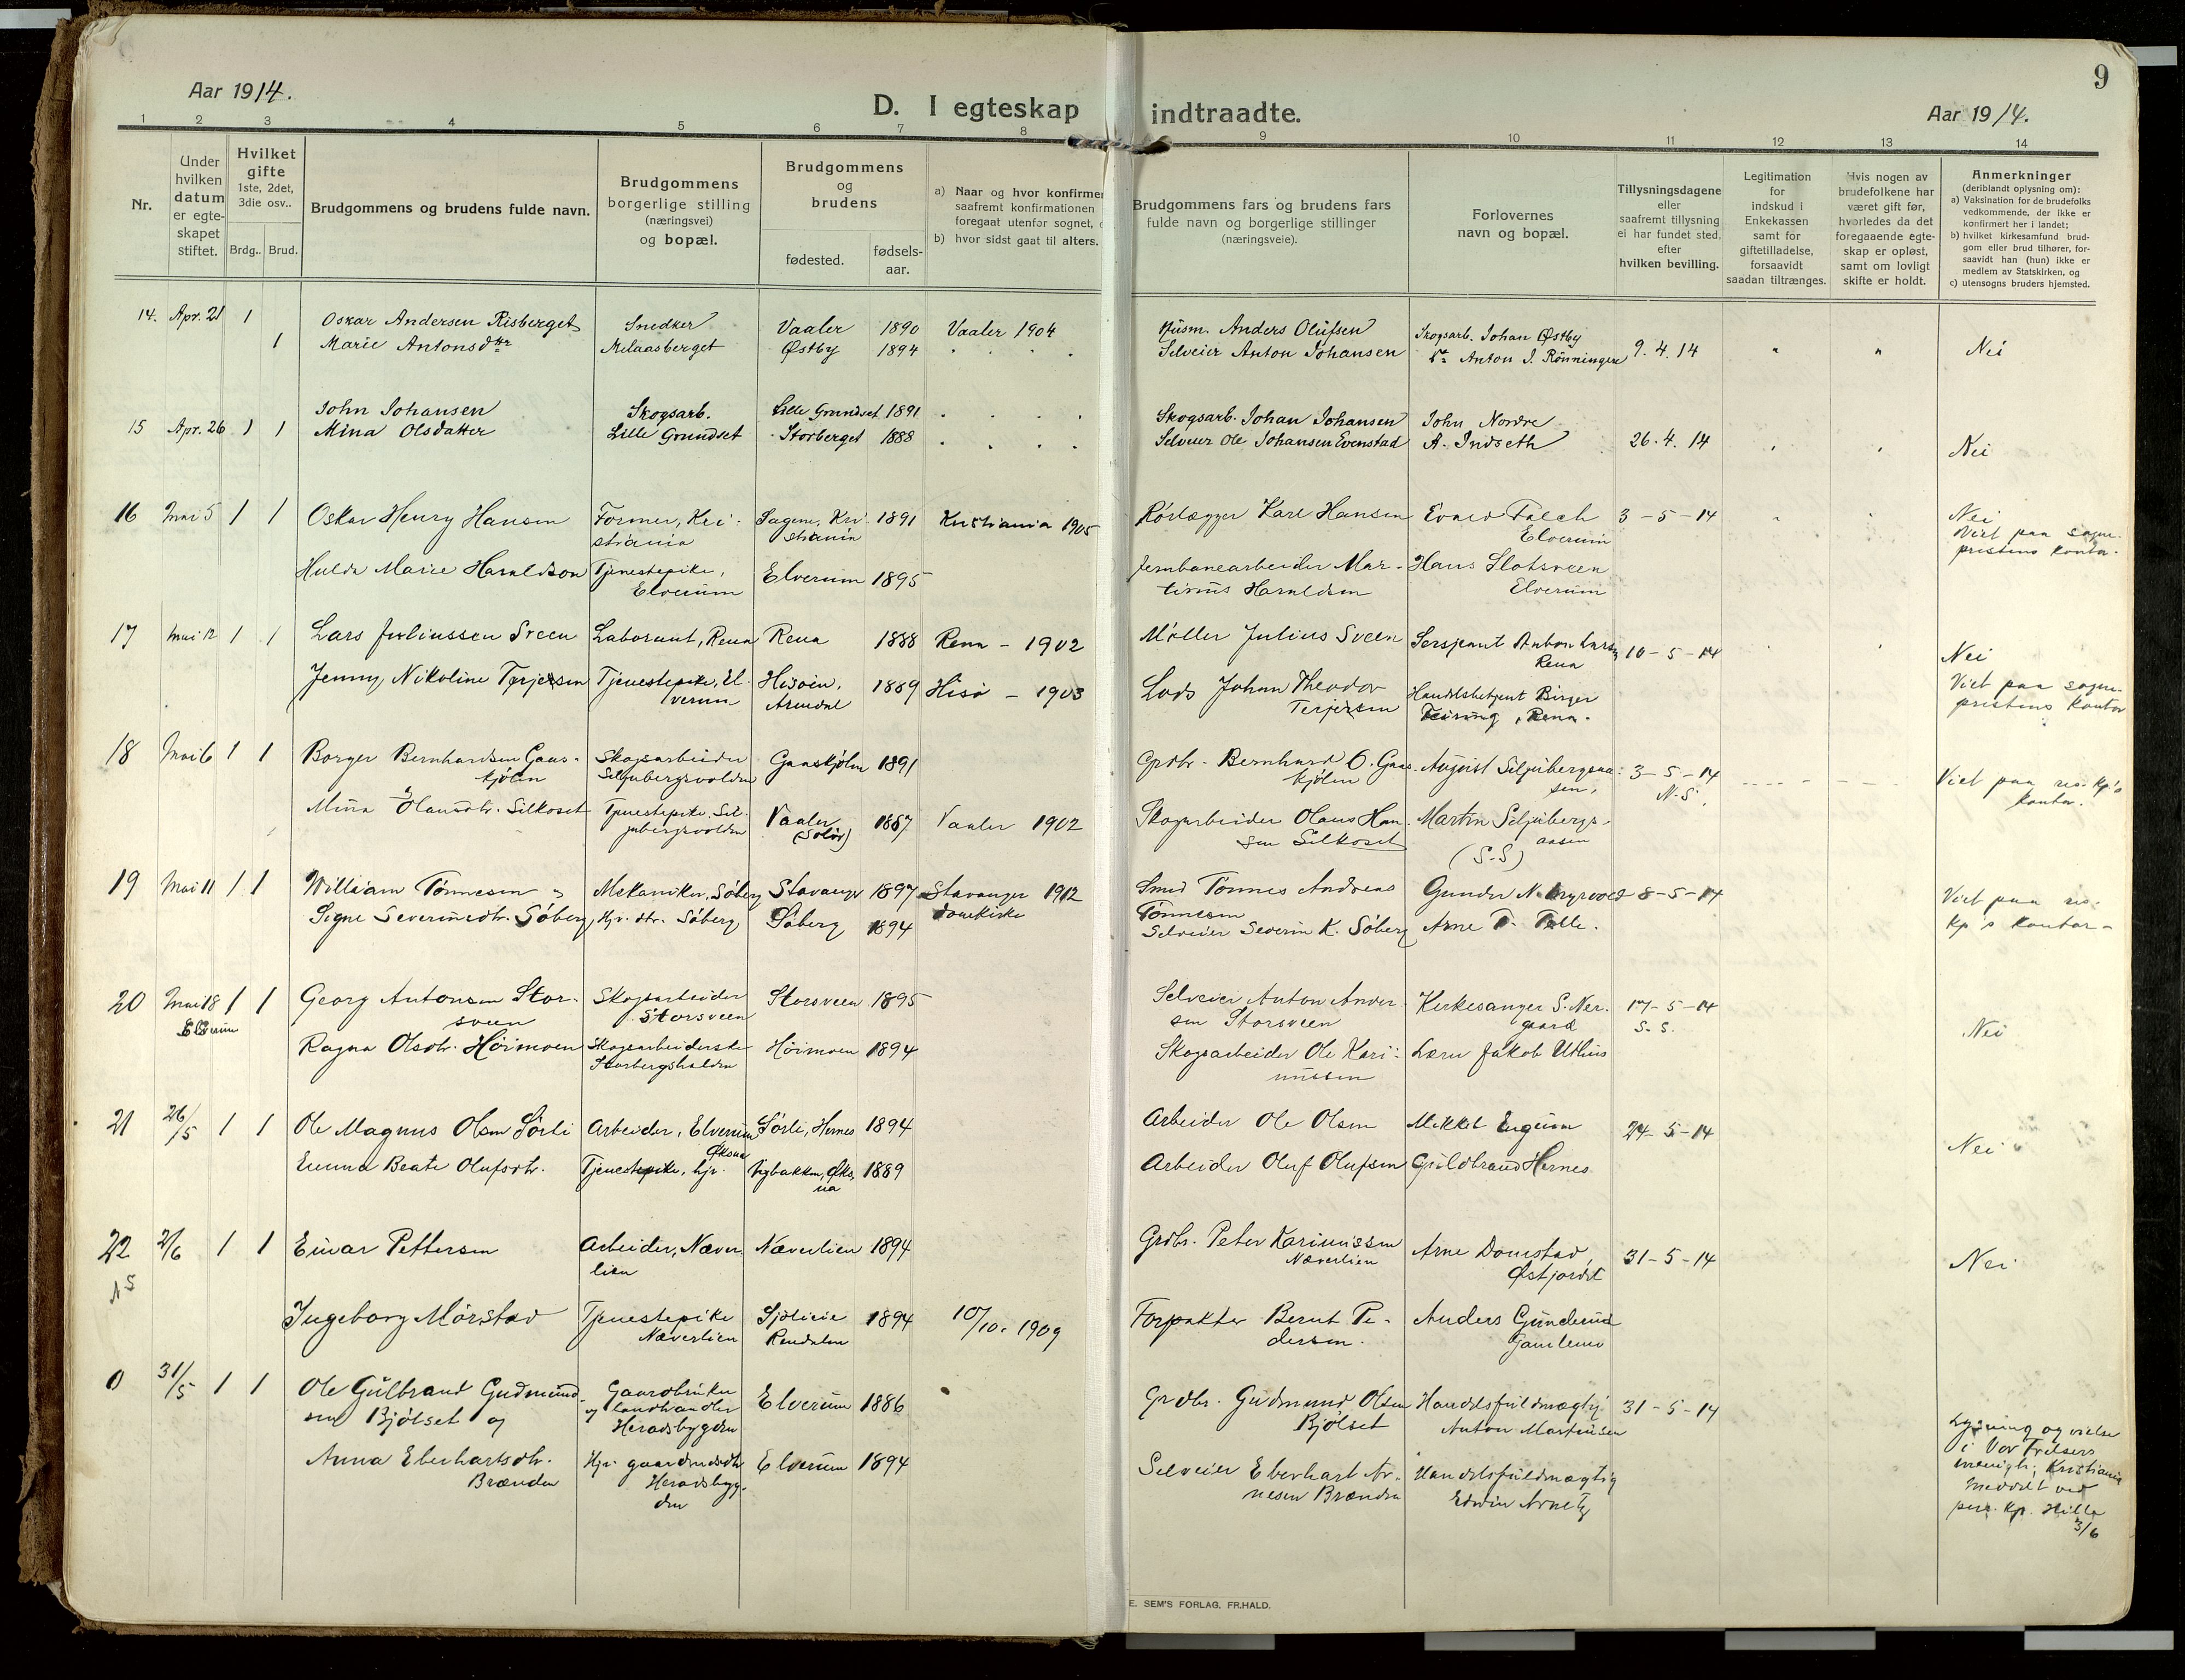 9
Aar 1914.
D. I egteskap indtraadte.
Aar 1914.
1 2 3 4 5 6 7 8 9 10 11 12 13 14
Nr.
Under
hvilken
datum
er egte-
skapet
stiftet.
Hvilket
gifte
1ste, 2det,
3die osv..
Brdg.. Brud.
Brudgommens og brudens fulde navn.
Brudgommens
borgerlige stilling
(næringsvei)
og bopæl.
Brudgommens
og
brudens
fødested.
fødsels-
aar.
a) Naar og hvor konfirmer
saafremt konfirmationen
foregaat utenfor sognet,
b) hvor sidst gaat til alters.
Brudgommens fars og brudens fars
fulde navn og borgerlige stillinger
(næringsveie).
Forlovernes
navn og bopæl.
Tillysningsdagene
eller
saafremt tillysning
ei har fundet sted,
efter
hvilken bevilling.
Legitimation
for
indskud i
Enkekassen
samt for
giftetilladelse,
forsaavidt
saadan tiltrænges.
Hvis nogen av
brudefolkene har
været gift før,
hvorledes da det
foregaaende egte-
skap er opløst,
samt om lovligt
skifte er holdt.
Anmerkninger
(deriblandt oplysning om):
a) Vaksination for de brudefolks
vedkommende, der ikke er
konfirmert her i landet;
b) hvilket kirkesamfund brud-
gom eller brud tilhører, for-
saavidt han (hun) ikke er
medlem av Statskirken, og
c) utensogns bruders hjemsted.
14. Apr. 21 1 Oskar Andersen Risberget Snedker Vaaler 1890 Vaaler 1904 Husm. Anders Olufsen Skogsarb. Johan Østby
1 Marie Antonsdtr Østby 1894 Selveier Anton Johansen Anton J. Rönningen 9. 4. 14 " " Nei
John Johansen Skogsarb. Lille Grundset 1891 Skogsarb. Johan Johansen John Nordre
15 Apr. 26 1 1 Mina Olsdatter Lille Grundset Storberget 1888 Selveier Ole Johansen Evenstad A. Indseth 26. 4. 14 Nei
16 Mai 5 1 1 Oskar Henry Hansen Former, Kri- Sagene, Kri- 1891 Kristiania 1905 Rörlægger Karl Hansen Evald Falch 3-5-14 Nei
stiania stiania Elverum Viet paa sogne-
prestens kontor.
Hulda Marie Haraldson Tjenestepike, Elverum 1895 Jernbanearbeider Mar- Hans Slotsveen
Elverum tinus Haraldsen Elverum
17 Mai 12 1 1 Lars Juliussen Sveen Laborant, Rena Rena 1888 Rena - 1902 Møller Julius Sveen Sersjeant Anton Larsen 10-5-14 Nei
Rena
Jenny Nikoline Terjesen Tjenestepike, El- Hisöien, 1889 Hisö - 1903 Lods Johan Theodor Handelsbetjent Birger Viet paa sogne-
verum Arendal Terjesen Teiring, Rena. prestens kontor
18 Mai 6 1 1 Borger Bernhardsen Gaas- Skogsarbeider Gaaskjölen 1891 Grdbr. Bernhard O. Gaas- August Siljubergsaa- 3-5-14 Viet paa res. kp's
kjölen Siljubergsvolden kjölen sen, N.S. kontor.
Mina Olausdtr. Silkoset Tjenestepike, Sil- Vaaler 1887 Vaaler 1902 Skogarbeider Olaus Han- Martin Siljubergs-
jubergsvolden (Solör) sen Silkoset aasen
(S.S)
19 Mai 11 1 1 William Tönnesen Mekaniker, Söberg Stavanger 1897 Stavanger 1912 Smed Tönnes Andreas Gunder N. Myrvold 8-5-14 Viet paa res.
Domkirke Tönnesen
Signe Severinsdtr. Söberg Hjv. dtr. Söberg Söberg 1894 Selveier Severin K. Söberg Arne T. Telle. kp's kontor.
20 Mai 18 1 1 Georg Antonsen Stor- Skogsarbeider Storsveen 1895 Selveier Anton Ander- Kirkesanger S. Ner- 17-5-14
Elverum sveen Storsveen sen Storsveen gaard S.S. Nei
Ragna Olsdtr. Höimoen Skogsarbeiderske Höimoen 1894 Skogsarbeider Ole Kari- Lærer Jakob Uthus
Storbergshalden nussen
21 26/5 1 1 Ole Magnus Olsen Sörli Arbeider, Elverum Sörli, Hernes 1894 Arbeider Ole Olsen Mikkel Engum 24-5-14
Øksna Nei
Emma Beate Olufsdtr. Tjenestepike, hjv. Vigbakken, Øks- 1889 Arbeider Oluf Olufsen Guldbrand Hernes
na
22 2/6 1 1 Einar Pettersen Arbeider, Næver- Næverlien 1894 Grdbr. Peter Karinussen Arne Domstad, 31-5-14 Nei
lien Næverlien Østfjordet
Ingeborg Mörstad Tjenestepike Sjölieie 1894 10/10. 1909 Forpakter Bernt Pe- Anders Gunderud
Næverlien Rendalen dersen. Gamlemo
0 31/5 1 1 Ole Gulbrand Gudmund- Gaardbruker Elverum 1886 Grdbr. Gudmund Olsen Handelsfuldmægtig 31-5-14
sen Bjölset og og landhandler Bjölset Anton Martinsen
Heradsbygden
Anna Eberhartsdtr. Hjv. gaardmdsdtr. Elverum 1894 Selveier Eberhart Ar- Handelsfuldmægtig
Brænden Heradsbyg- nesen Brænden Edvin Arnetz
den
Lysning og vielse
i Vor Frelsers
menigh., Kristiania
meddelt ved
pers. kp. Hille
3/6
E. SEM'S FORLAG, FR.HALD.